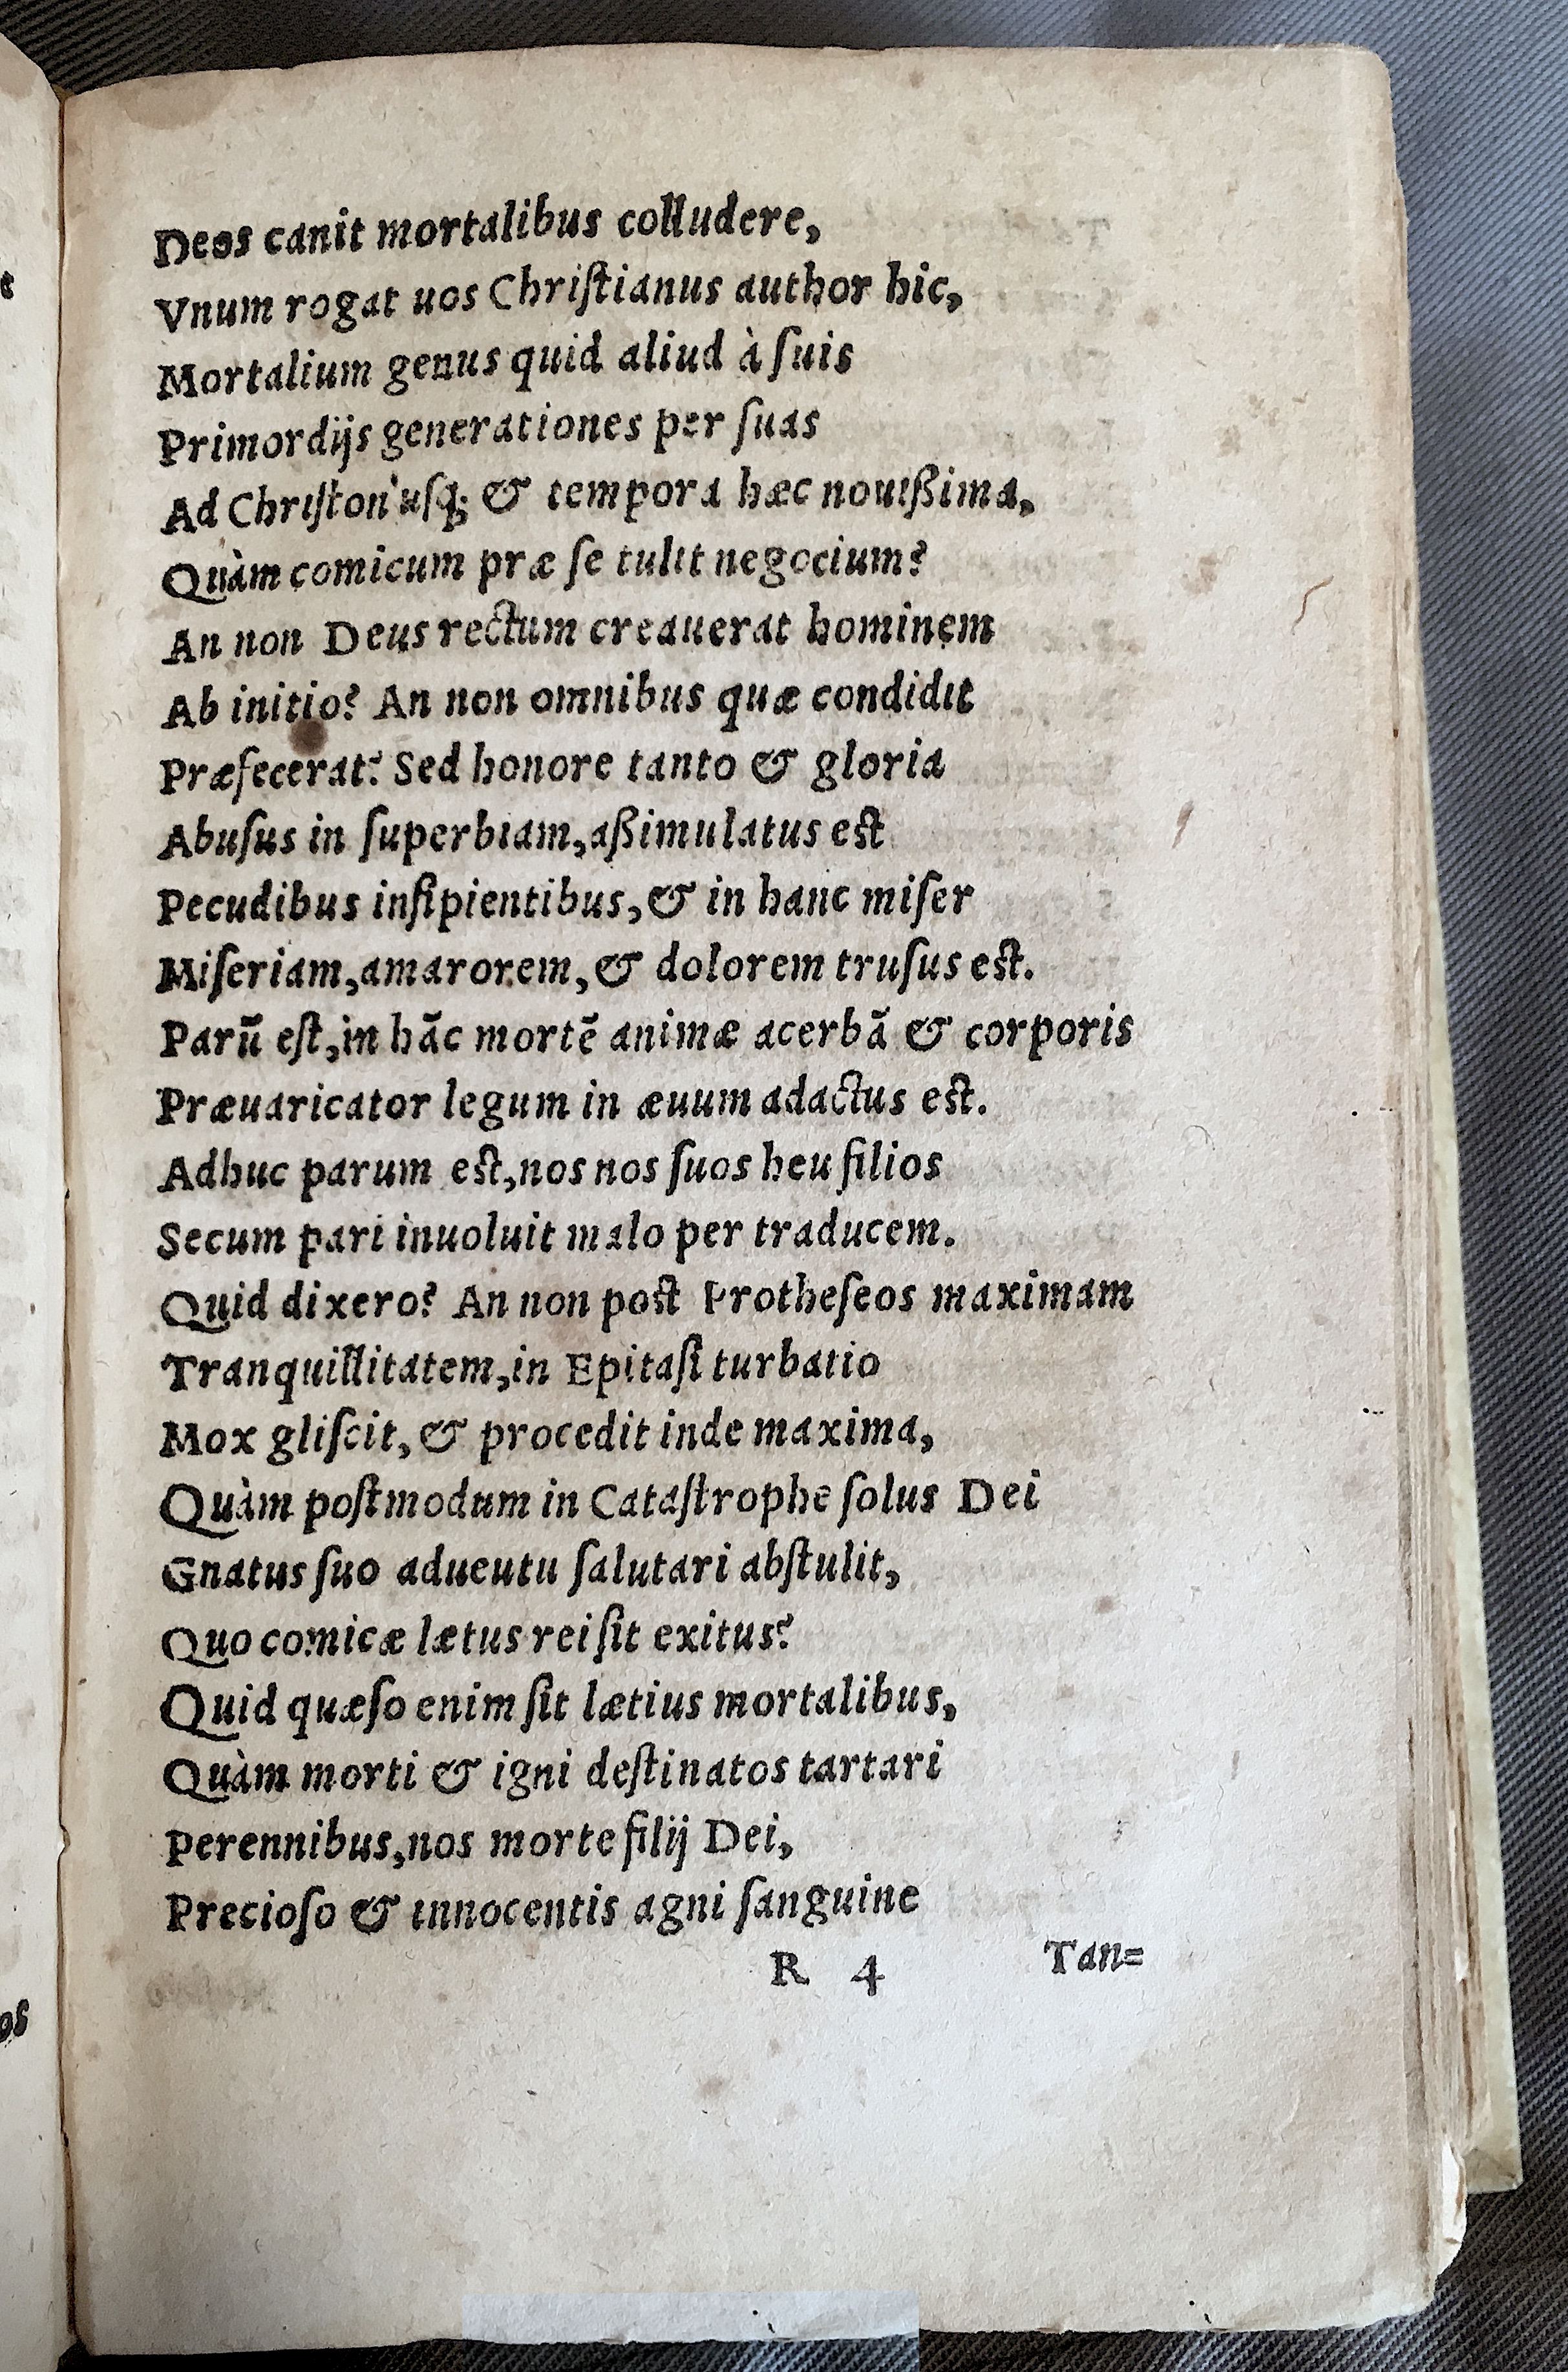 Deos canit mortalibus colludere,
Vnum rogat uos Chriſtianus author hic,
Mortalium genus quid aliud à ſuis
Primordijs generationes per ſuas
Ad Chriſton'uſq; & tempora hæc nouißima,
Quàm comicum præ ſe tulit negocium?
An non Deus rectum creauerat hominem
Ab initio? An non omnibus quæ condidit
Præfecerat? Sed honore tanto & gloria
Abuſus in ſuperbiam, aßimulatus eſt
Pecudibus inſipientibus, & in hanc miſer
Miſeriam, amarorem, & dolorem truſus eſt.
Parū eſt, in hāc mortē animæ acerbā & corporis
Præuaricator legum in æuum adactus eſt.
Adhuc parum eſt, nos nos ſuos heu filios
Secum pari inuoluit malo per traducem.
Quid dixero? An non poſt Protheſeos maximam
Tranquillitatem, in Epitaſi turbatio
Mox gliſcit, & procedit inde maxima,
Quàm poſtmodum in Cataſtrophe ſolus Dei
Gnatus ſuo adueutu ſalutari abſtulit,
Quo comicæ lætus rei ſit exitus?
Quid quæſo enim ſit lætius mortalibus,
Quàm morti & igni deſtinatos tartari
Perennibus, nos morte filij Dei,
Precioſo & innocentis agni ſanguine
R 4 Tan=